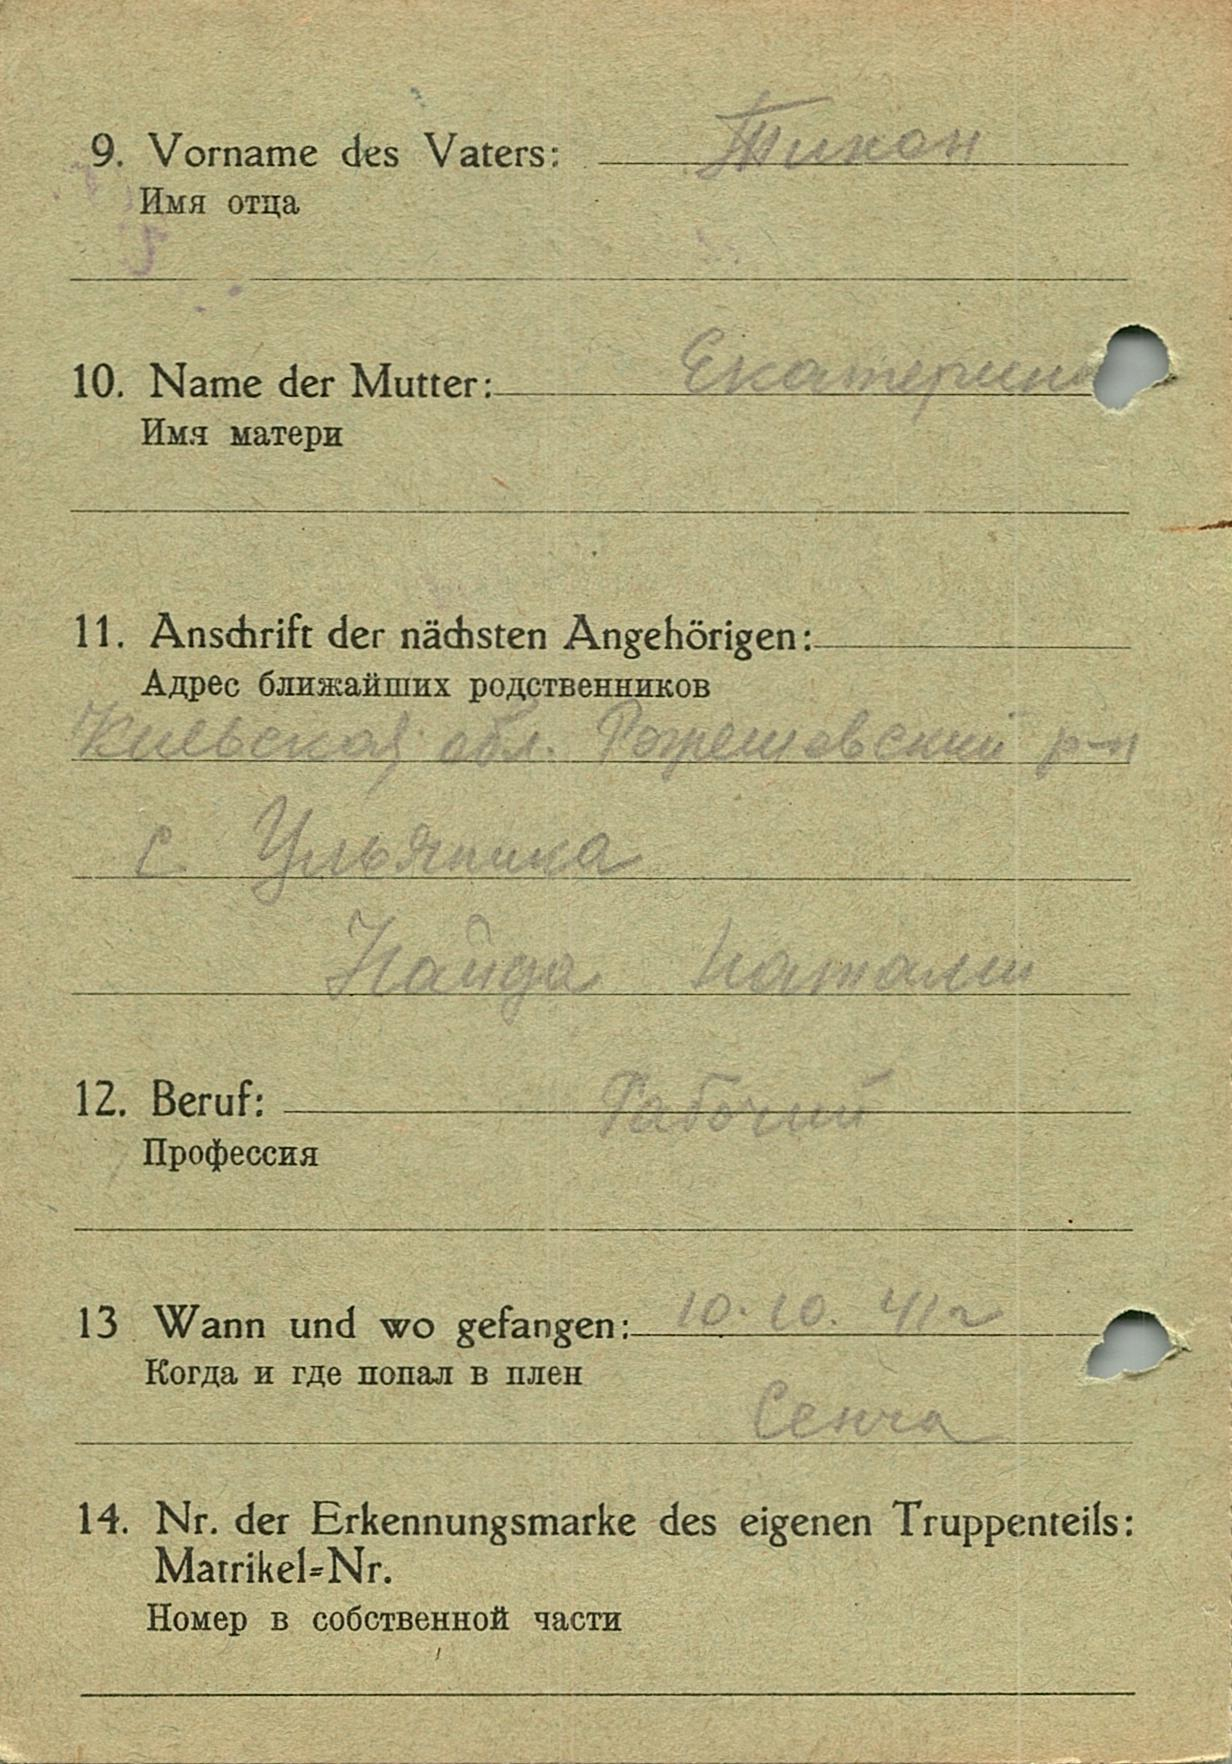 9. Vorname des Vaters: Тихон
Имя отца
10. Name der Mutter: Екатерина
Имя матери
11. Anschrift der nächsten Angehörigen:
Адрес ближайших родственников
обл. р-н
с. Ульяника
Найда Натали
12. Beruf: Рабочий
Профессия
13 Wann und wo gefangen: 10. 10. 41 г
Когда и где попал в плен
Сенча
14. Nr. der Erkennungsmarke des eigenen Truppenteils:
Matrikel=Nr.
Номер в собственной части